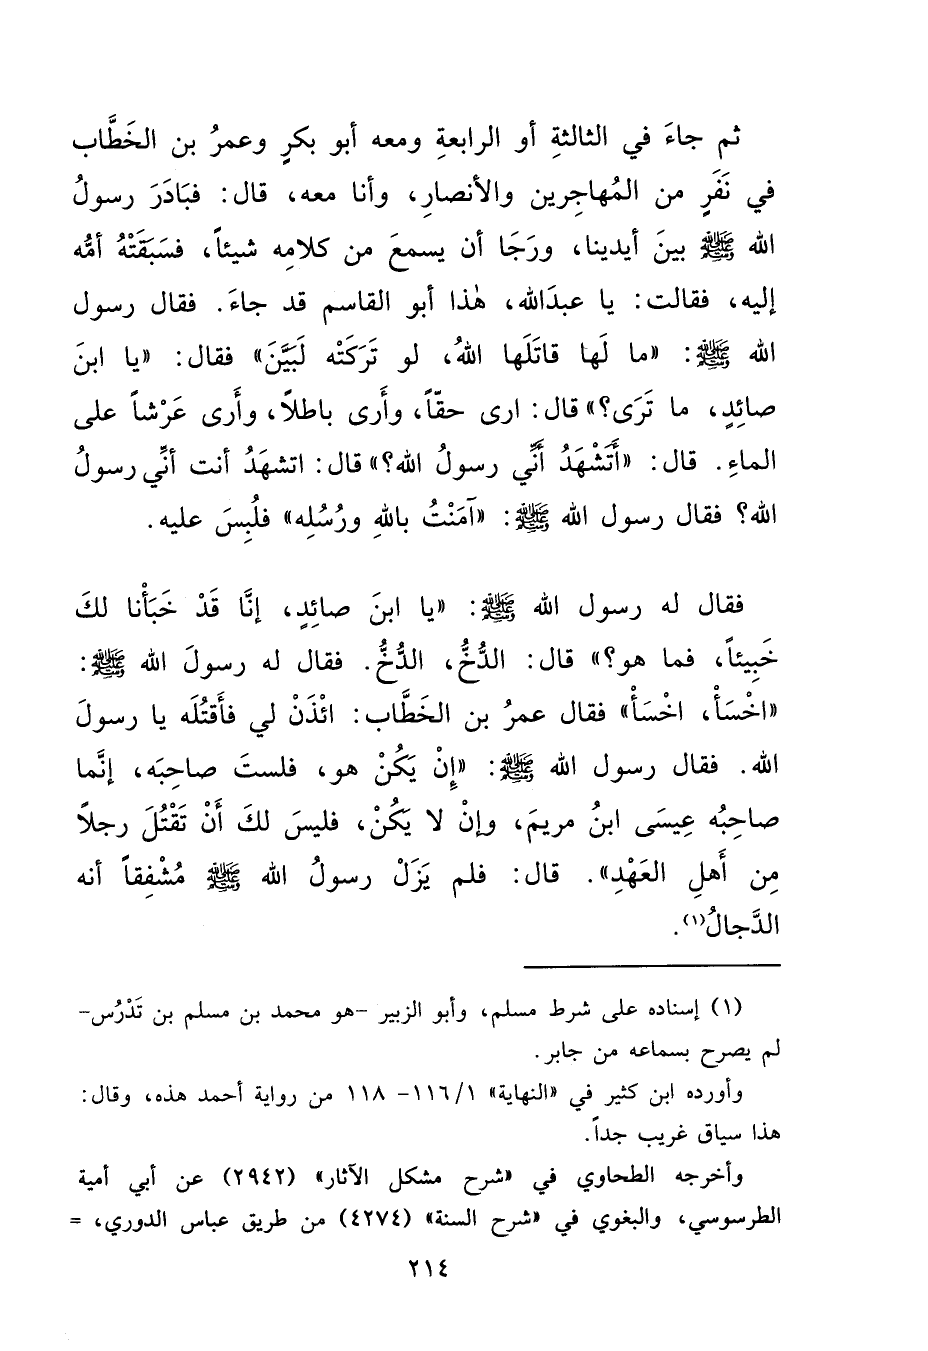 ثم جاءَ في الثالثةِ أو الرابعةِ ومعه أبو بكرٍ وعمرُ بن الخَطَّاب
في نَفَرٍ من المُهاجِرين والأنصارِ، وأنا معه، قال: فبَادَرَ رسولُ
الله ﷺ بينَ أيدينا، ورَجَا أن يسمعَ من كلامِه شيئاً، فسَبَقَتْهُ أمُّه
إليه، فقالت: يا عبدَالله، هٰذا أبو القاسم قد جاءَ. فقال رسول
الله ﷺ: «ما لَها قاتَلَها اللهُ، لو تَرَكَتْه لَبَيَّنَ» فقال: «يا ابنَ
صائِدٍ، ما تَرَى؟» قال: ارى حقّاً، وأَرى باطلاً، وأَرى عَرْشاً على
الماءِ. قال: «أَتَشْهَدُ أَنِّي رسولُ الله؟» قال: اتشهَدُ أنت أنِّي رسولُ
الله؟ فقال رسول الله ﷺ: «آمَنْتُ باللهِ ورُسُلِه» فلُبِسَ عليه.
فقال له رسول الله ﷺ: «يا ابنَ صائِدٍ، إنَّا قَدْ خَبَأْنا لكَ
خَبِيئاً، فما هو؟» قال: الدُّخُّ، الدُّخُّ. فقال له رسولَ الله ﷺ:
«اخْسَأْ، اخْسَأْ» فقال عمرُ بن الخَطَّاب: ائْذَنْ لي فأَقتُلَه يا رسولَ
الله. فقال رسول الله ﷺ: «إِنْ يَكُنْ هو، فلستَ صاحِبَه، إنَّما
صاحِبُه عِيسَى ابنُ مريمَ، وإنْ لا يَكُنْ، فليسَ لكَ أَنْ تَقْتُلَ رجلاً
مِن أَهلِ العَهْدِ». قال: فلم يَزَلْ رسولُ الله ﷺ مُشْفِقاً أنه
الدَّجالُ(١).
(١) إسناده على شرط مسلم، وأبو الزبير -هو محمد بن مسلم بن تَدْرُس-
لم يصرح بسماعه من جابر.
وأورده ابن كثير في «النهاية» ١/١١٦- ١١٨ من رواية أحمد هذه، وقال:
هذا سياق غريب جداً.
وأخرجه الطحاوي في «شرح مشكل الآثار» (٢٩٤٢) عن أبي أمية
الطرسوسي، والبغوي في «شرح السنة» (٤٢٧٤) من طريق عباس الدوري، =
٢١٤